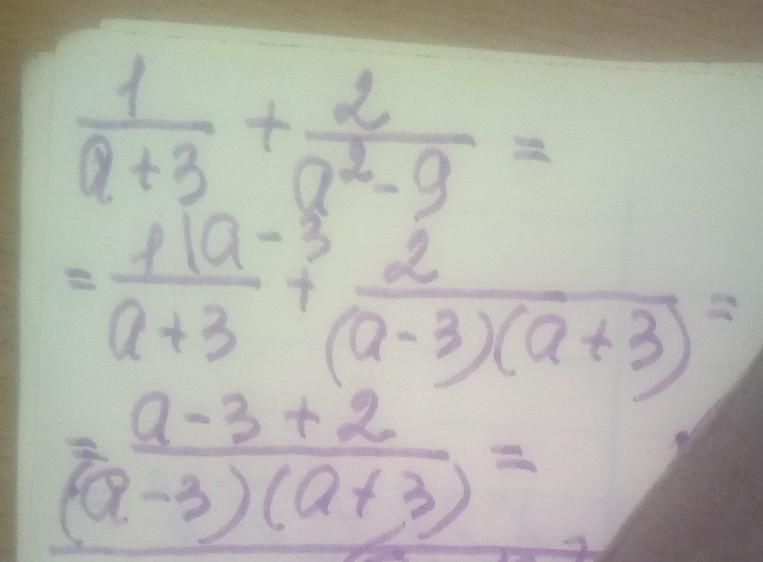 1/(a+3) + 2/(a²-9) =
= 1\a-3/(a+3) + 2/((a-3)(a+3)) =
= (a-3+2)/((a-3)(a+3)) =